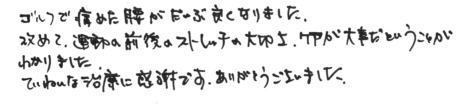 ゴルフで痛めた腰がだいぶ良くなりました。
改めて、運動の前後のストレッチの大切さ、ケアが大事だということが
わかりました。
ていねいな治療に感謝です。ありがとうございました。